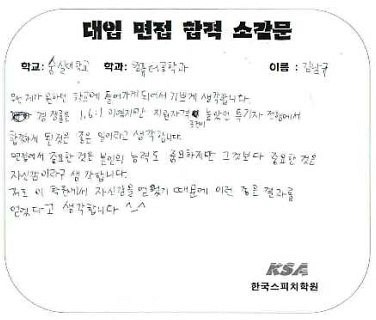 대입 면접 합격 소감문
학교: 숭실대학교 학과: 컴퓨터공학과 이름 : 김남구
우선 제가 원하던 학교에 들어가게 되어서 기쁘게 생각합니다
경쟁률은 1.6:1 이였지만 지원자격 조건이 높았던 특기자 전형에서
합격하게 된것은 좋은 일이라고 생각합니다
면접에서 중요한 것은 본인의 능력도 중요하지만 그것보다 중요한 것은
자신감이라구 생각합니다.
저도 이 학원에서 자신감을 얻었기 때문에 이런 좋은 결과를
얻었다고 생각합니다 ^_^
KSA
한국스피치학원